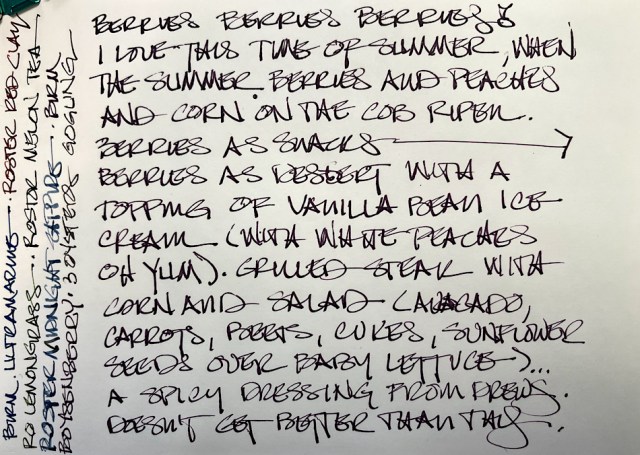 BERRIES BERRIES BERRIES
I LOVE THIS TIME OF SUMMER, WHEN
THE SUMMER BERRIES AND PEACHES
AND CORN ON THE COB RIPEN.
BERRIES AS SNACKS
BERRIES AS DESSERT WITH A
TOPPING OF VANILLA BEAN ICE
CREAM. (WITH WHITE PEACHES
OH YUM). GRILLED STEAK WITH
CORN AND SALAD (AVACADO,
CARROTS, BEETS, CUKES, SUNFLOWER
SEEDS OVER BABY LETTUCE)...
A SPICY DRESSING FROM DREWS.
DOESN'T GET BETTER THAN THIS.
BIRM. ULTRAMARINE. ROSTER RED CLAY
RO LEMONGRASS. ROSTER MELON TEA
ROSTER MIDNIGHT BIRM
BOYSENBERRY. 3 OYSTERS GOGUNG